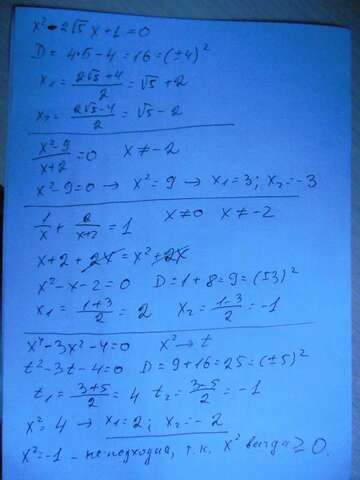 x² - 2√5 x + 1 = 0
D = 4·5 - 4 = 16 = (±4)²
x₁ = (2√5+4)/2 = √5 + 2
x₂ = (2√5-4)/2 = √5 - 2
(x²-9)/(x+2) = 0 x ≠ -2
x² - 9 = 0 → x² = 9 → x₁ = 3; x₂ = -3
1/x + 2/(x+2) = 1 x ≠ 0 x ≠ -2
x + 2 + 2x = x² + 2x
x² - x - 2 = 0 D = 1 + 8 = 9 = (±3)²
x₁ = (1+3)/2 = 2 x₂ = (1-3)/2 = -1
x⁴ - 3x² - 4 = 0 x² → t
t² - 3t - 4 = 0 D = 9 + 16 = 25 = (±5)²
t₁ = (3+5)/2 = 4 t₂ = (3-5)/2 = -1
x² = 4 → x₁ = 2; x₂ = -2
x² = -1 - не подходит, т.к. x² всегда ≥ 0.